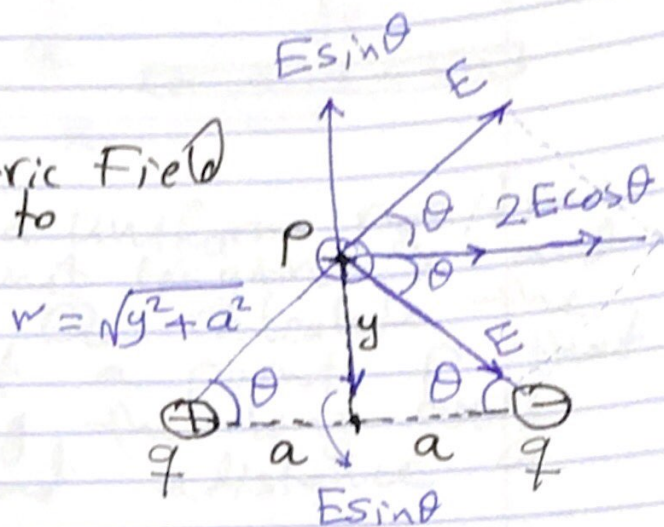 Esinθ
E
ric Field
to
θ
2Ecosθ
P
θ
r = √y²+a²
y
E
θ
θ
+
−
q
a
a
q
Esinθ